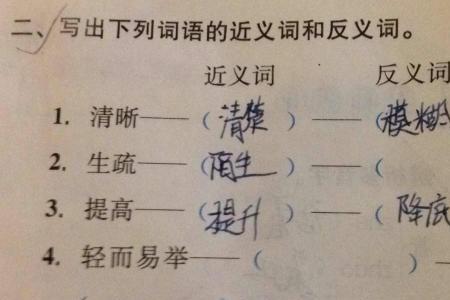 二、写出下列词语的近义词和反义词。
近义词 反义词
1. 清晰——（清楚）——（模糊
2. 生疏——（陌生）——（
3. 提高——（提升）——（降底
4. 轻而易举——（ ）—